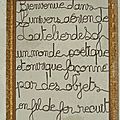 Bienvenue dans
l'univers aérien de
L'atelier des ch
un monde poétique
et onirique façonné
par des objets
en fil de fer recuit